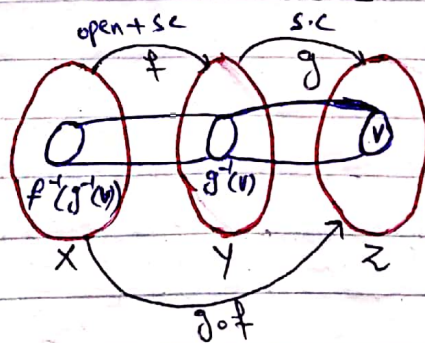 open + sc s.c
f g
f⁻¹(g⁻¹(v)) g⁻¹(v) v
X Y Z
g∘f